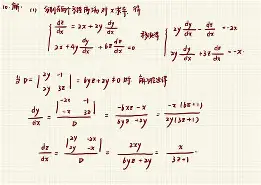 10. 解: (1) 分别在两个方程两边对 x 求导, 得
{ dz/dx = 2x + 2y dy/dx
2x + 4y dy/dx + 6z dz/dx = 0
{ 2y dy/dx - dz/dx = -2x
2y dy/dx + 3z dz/dx = -x
当 D = | 2y -1 ; 2y 3z | = 6yz + 2y ≠ 0 时
dy/dx = | -2x -1 ; -x 3z | / D = (-6xz - x) / (6yz + 2y) = -x(6z+1) / 2y(3z+1)
dz/dx = | 2y -2x ; 2y -x | / D = 2xy / (6yz + 2y) = x / (3z+1)